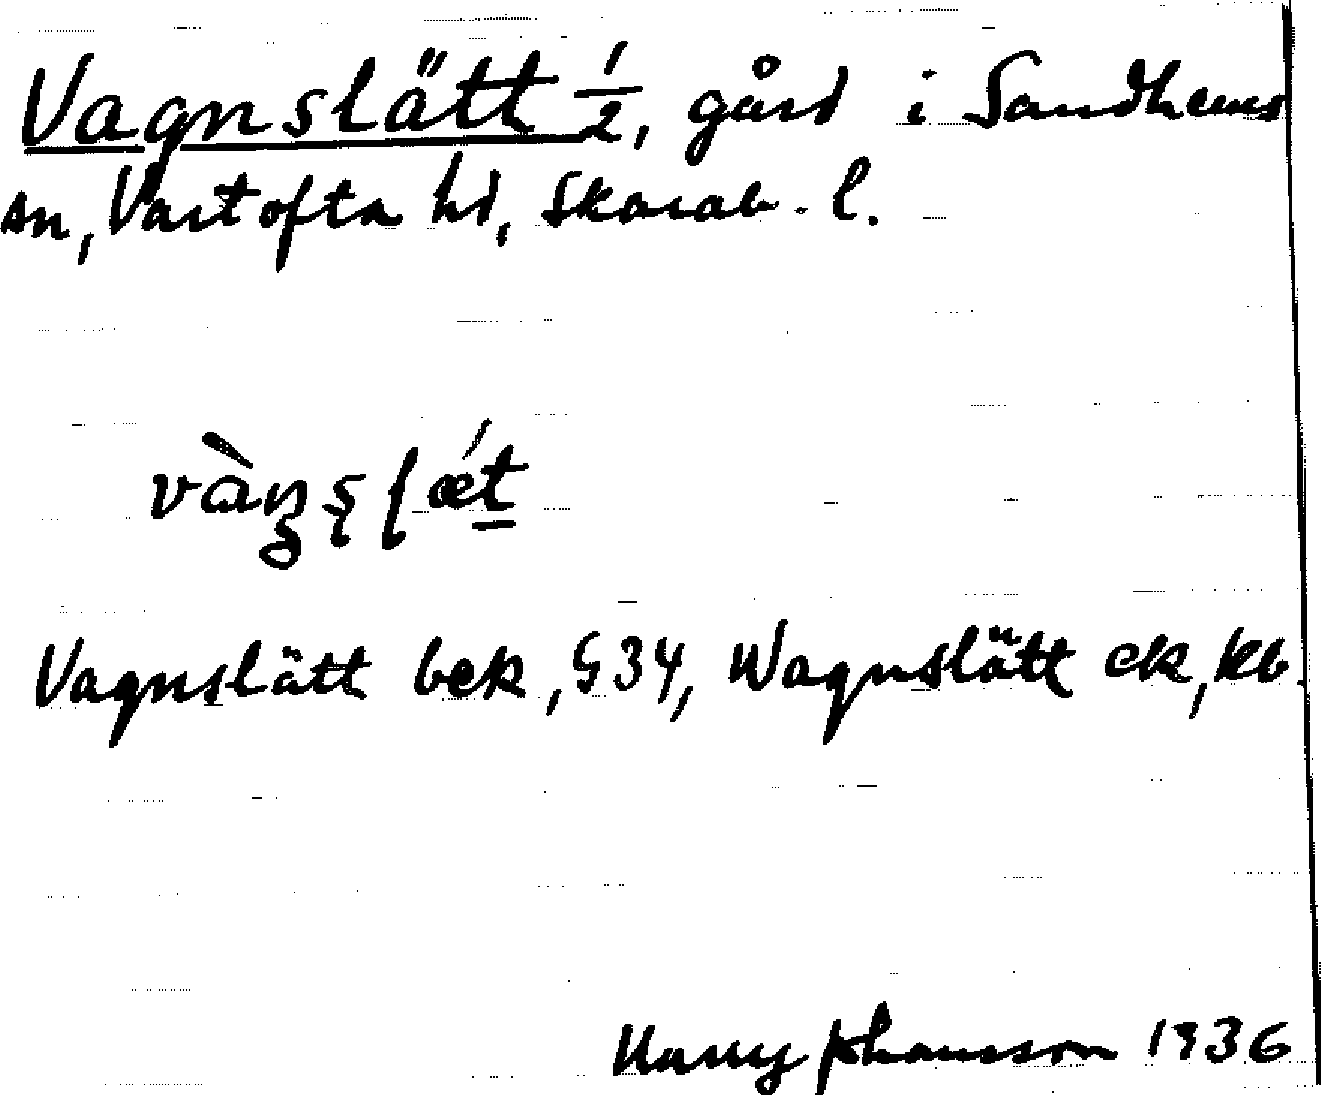 Vagnslätt 1/2, gård i Sandhems
sn, Vartofta hd, Skarab. l.
Vagnslätt bek, G34, Wagnslätt ek, kb.
Harry Johansson 1936